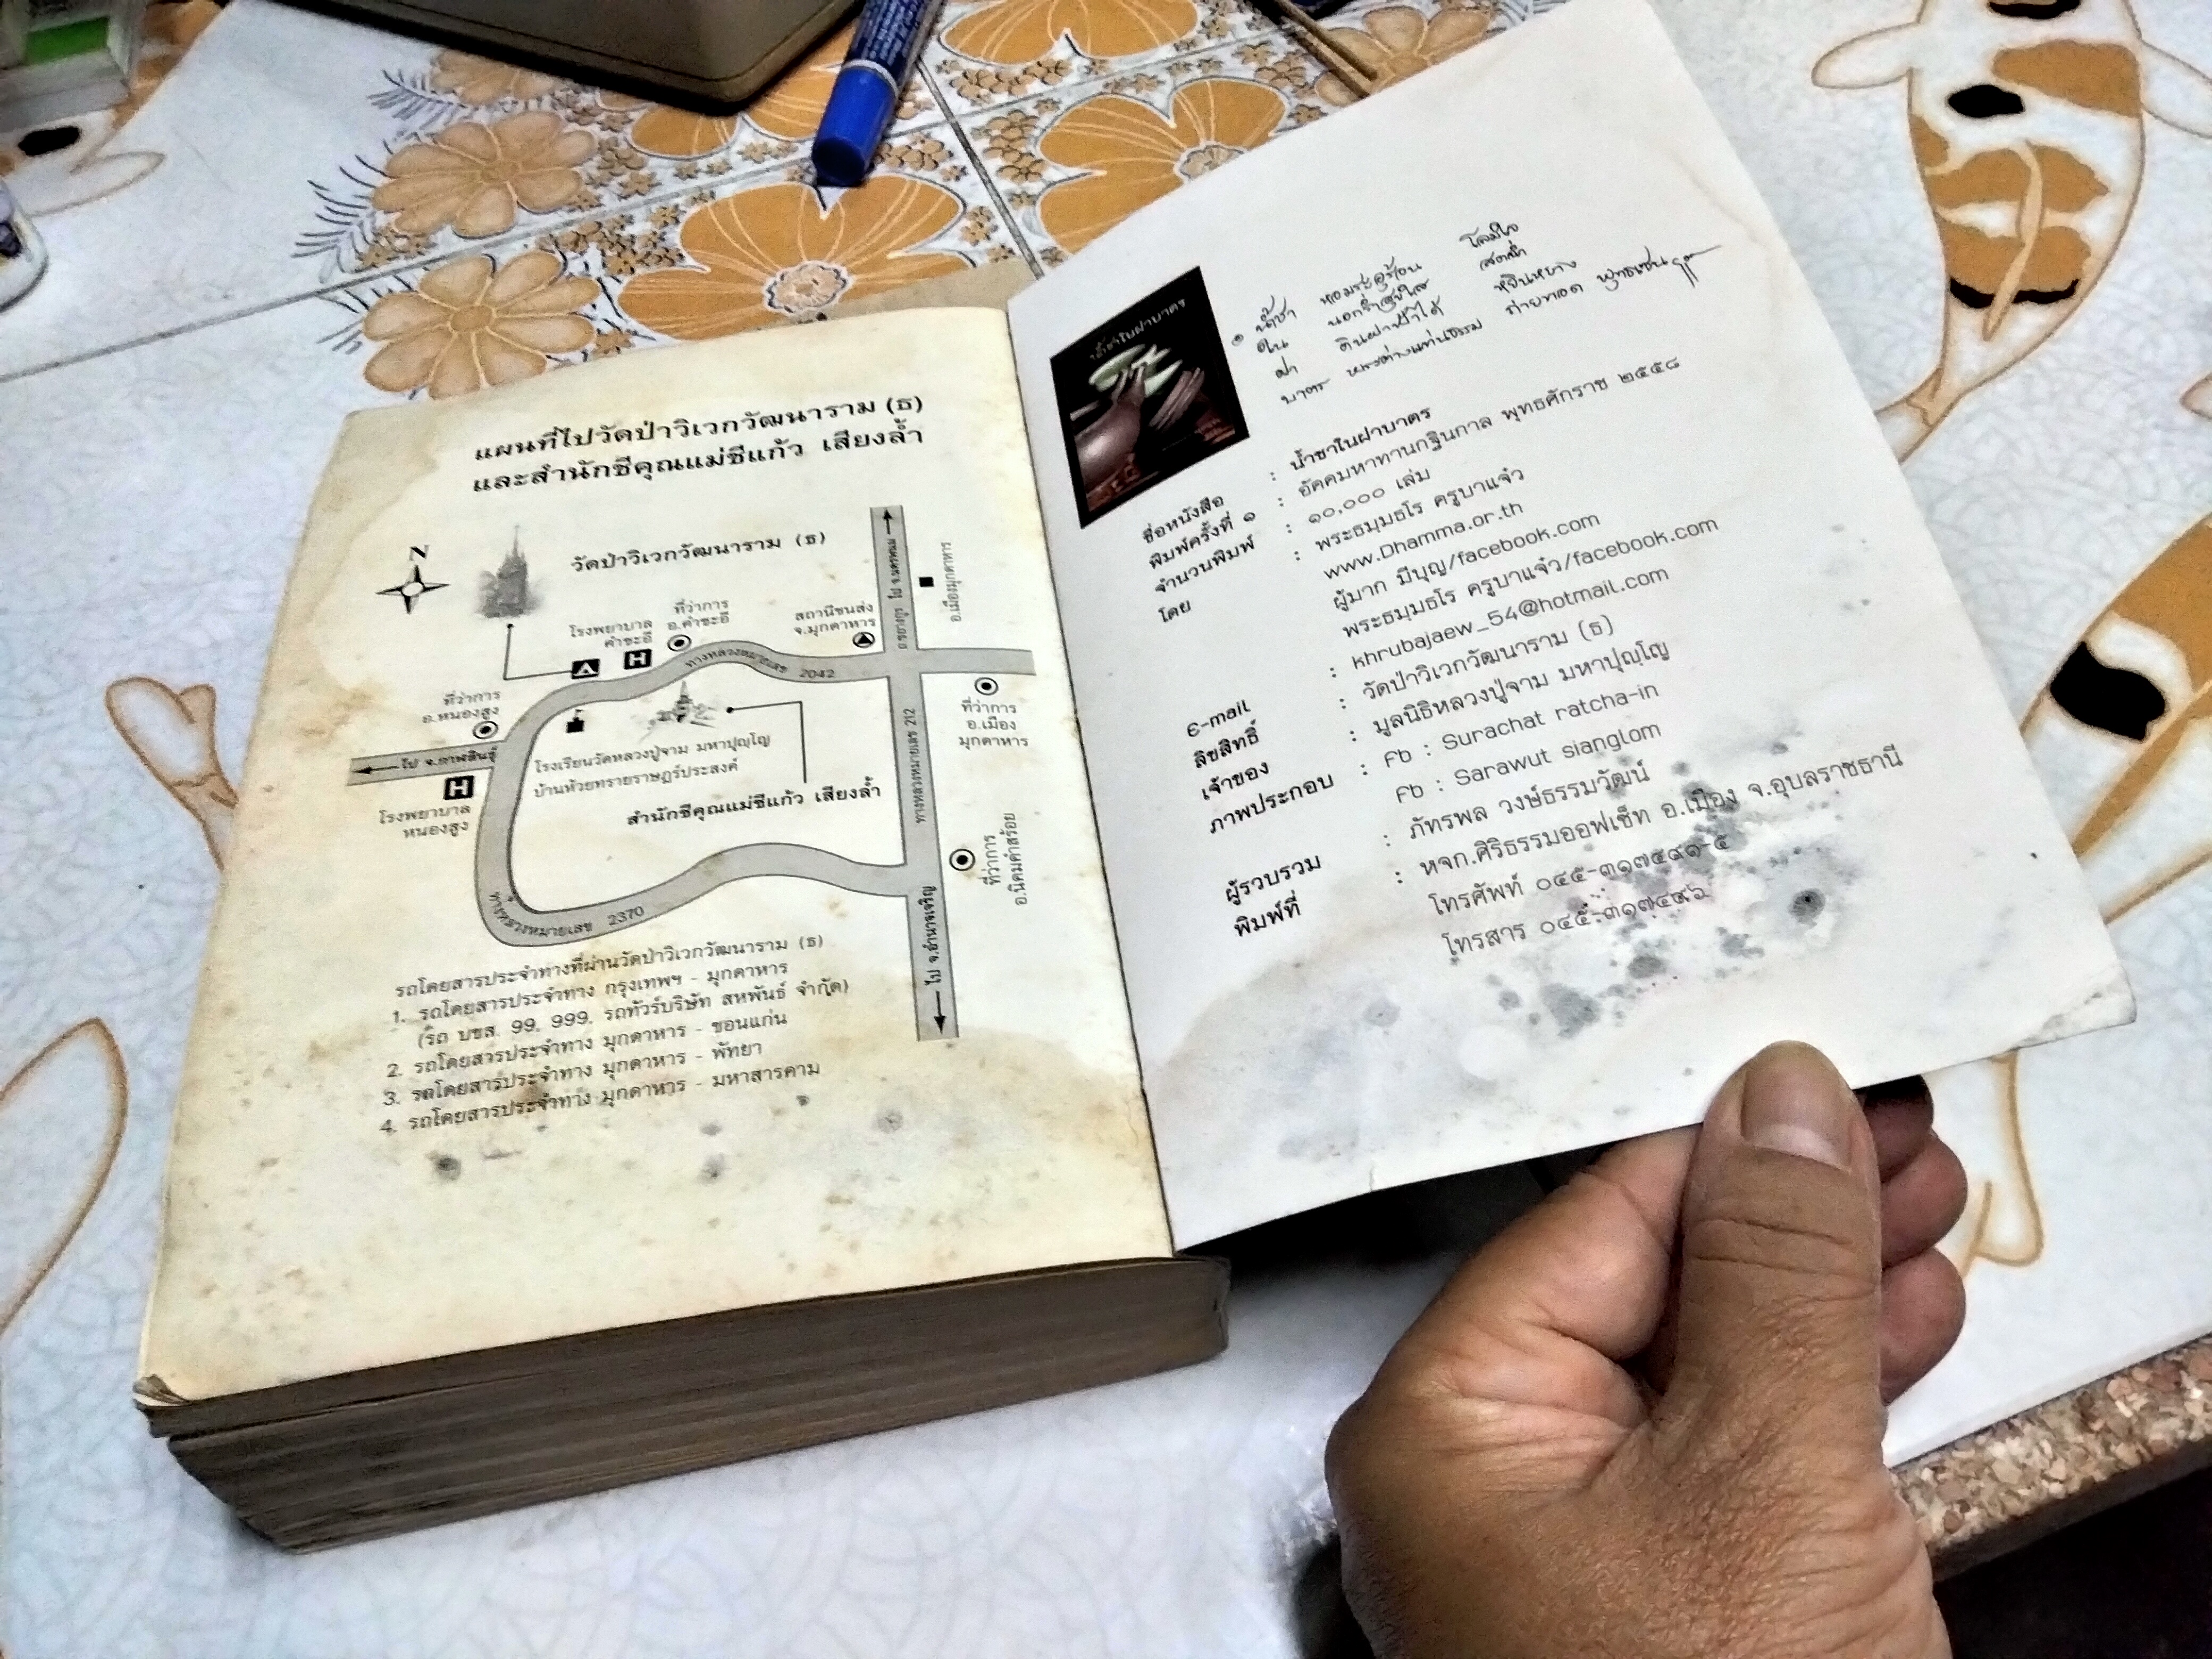 แผนที่ไปวัดป่าวิเวกวัฒนาราม (ธ)
และสำนักชีคุณแม่ชีแก้ว เสียงล้ำ
N
วัดป่าวิเวกวัฒนาราม (ธ)
ไป จ.นครพนม
อ.เมืองมุกดาหาร
โรงพยาบาล
คำชะอี
ที่ว่าการ
อ.คำชะอี
สถานีขนส่ง
จ.มุกดาหาร
H
ทางหลวงหมายเลข 2042
ที่ว่าการ
อ.หนองสูง
ที่ว่าการ
อ.เมือง
มุกดาหาร
ไป จ.กาฬสินธุ์
H
โรงพยาบาล
หนองสูง
โรงเรียนวัดหลวงปู่จาม มหาปุญฺโญ
บ้านห้วยทรายราษฎร์ประสงค์
สำนักชีคุณแม่ชีแก้ว เสียงล้ำ
ทางหลวงหมายเลข 212
ที่ว่าการ
อ.นิคมคำสร้อย
ทางหลวงหมายเลข 2370
ไป จ.อำนาจเจริญ
รถโดยสารประจำทางที่ผ่านวัดป่าวิเวกวัฒนาราม (ธ)
1. รถโดยสารประจำทาง กรุงเทพฯ - มุกดาหาร
(รถ บขส. 99, 999, รถทัวร์บริษัท สหพันธ์ จำกัด)
2. รถโดยสารประจำทาง มุกดาหาร - ขอนแก่น
3. รถโดยสารประจำทาง มุกดาหาร - พัทยา
4. รถโดยสารประจำทาง มุกดาหาร - มหาสารคาม
น้ำชาในฝาบาตร
น้ำชา
ใน
ฝา
บาตร
ชื่อหนังสือ : น้ำชาในฝาบาตร
พิมพ์ครั้งที่ ๑ : อัคคมหาทานกฐินกาล พุทธศักราช ๒๕๕๘
จำนวนพิมพ์ : ๑๐,๐๐๐ เล่ม
โดย : พระธมฺมธโร ครูบาแจ๋ว
www.Dhamma.or.th
ผู้มาก มีบุญ/facebook.com
พระธมฺมธโร ครูบาแจ๋ว/facebook.com
E-mail : khrubajaew_54@hotmail.com
ลิขสิทธิ์ : วัดป่าวิเวกวัฒนาราม (ธ)
เจ้าของ : มูลนิธิหลวงปู่จาม มหาปุญฺโญ
ภาพประกอบ : Fb : Surachat ratcha-in
Fb : Sarawut sianglom
ผู้รวบรวม : ภัทรพล วงษ์ธรรมวัฒน์
พิมพ์ที่ : หจก.ศิริธรรมออฟเซ็ท อ.เมือง จ.อุบลราชธานี
โทรศัพท์ ๐๔๕-๓๑๗๕๙๑-๕
โทรสาร ๐๔๕-๓๑๗๕๙๖